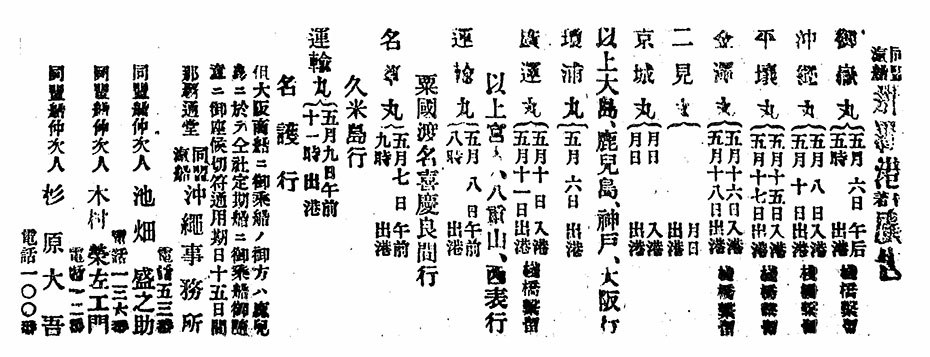 御嶽丸 五月六日午后五時出港 棧橋繫留
沖繩丸 五月八日入港 五月十日出港 棧橋繫留
平壤丸 五月十五日入港 五月十七日出港 棧橋繫留
金澤丸 五月十六日入港 五月十八日出港 棧橋繫留
二見丸 月日 出港
京城丸 月日入港 月日出港
以上大島、鹿兒島、神戶、大阪行
瓊浦丸 五月六日 出港
廣運丸 五月十日入港 五月十一日出港 棧橋繫留
以上宮古、八重山、西表行
運輸丸 五月八日午前八時 出港
粟國渡名喜慶良間行
名護丸 五月七日午前九時 出港
久米島行
運輸丸 五月九日午前十一時出港
名護行
但大阪商船ニ御乘船ノ御方ハ鹿兒
島ニ於テ仝社定期船ニ御乘船御隨
意ニ御座候切符通用期日十五日間
那覇通堂 同盟滊船 沖繩事務所
電話五三番
同盟船仲次人 池畑盛之助
電話一三六番
同盟船仲次人 木村榮左工門
電話一二番
同盟船仲次人 杉原大吾
電話一〇〇番